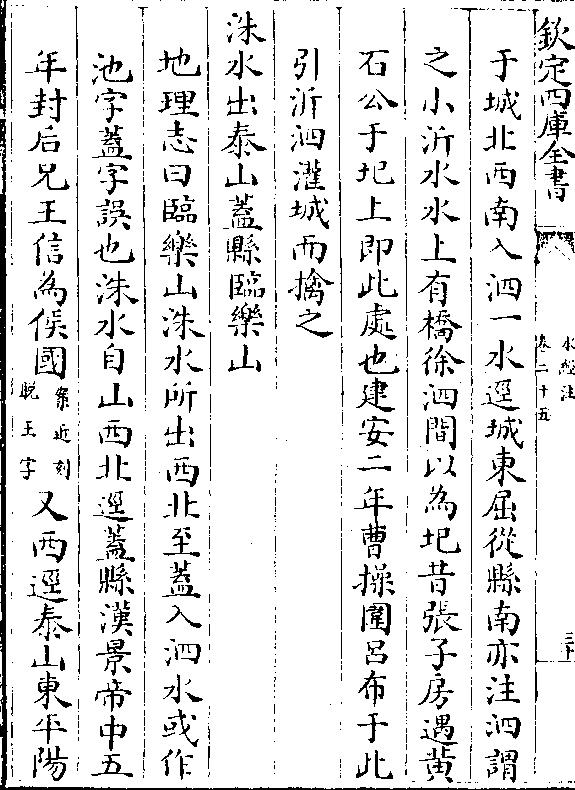 欽定四庫全書
水經注
卷二十五
三十
于城北西南入泗一水逕城東屈從縣南亦注泗謂
之小沂水水上有橋徐泗間以為圯昔張子房遇黃
石公于圯上即此處也建安二年曹操圍呂布于此
引沂泗灌城而擒之
洙水出泰山蓋縣臨樂山
地理志曰臨樂山洙水所出西北至蓋入泗水或作
池字蓋字誤也洙水自山西北逕蓋縣漢景帝中五
年封后兄王信為侯國案近刻脫王字又西逕泰山東平陽